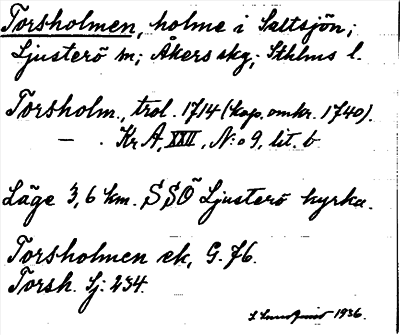 Torsholmen, holme i Saltsjön;
Ljusterö sn; Åkers skg; Sthlms l.
Torsholm., trol. 1714 (kop. omkr. 1740).
— . Kr A, XXII, N:o 9, lit. b
Läge 3,6 km. SSO Ljusterö kyrka.
Torsholmen ek, G. 76.
Torsh. Sj: 234.
1936.